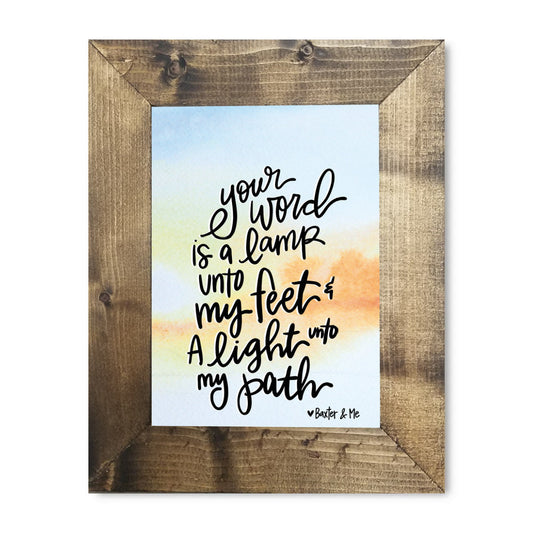 your
word
is a lamp
unto
my feet &
A light unto
my path
♥Baxter & Me